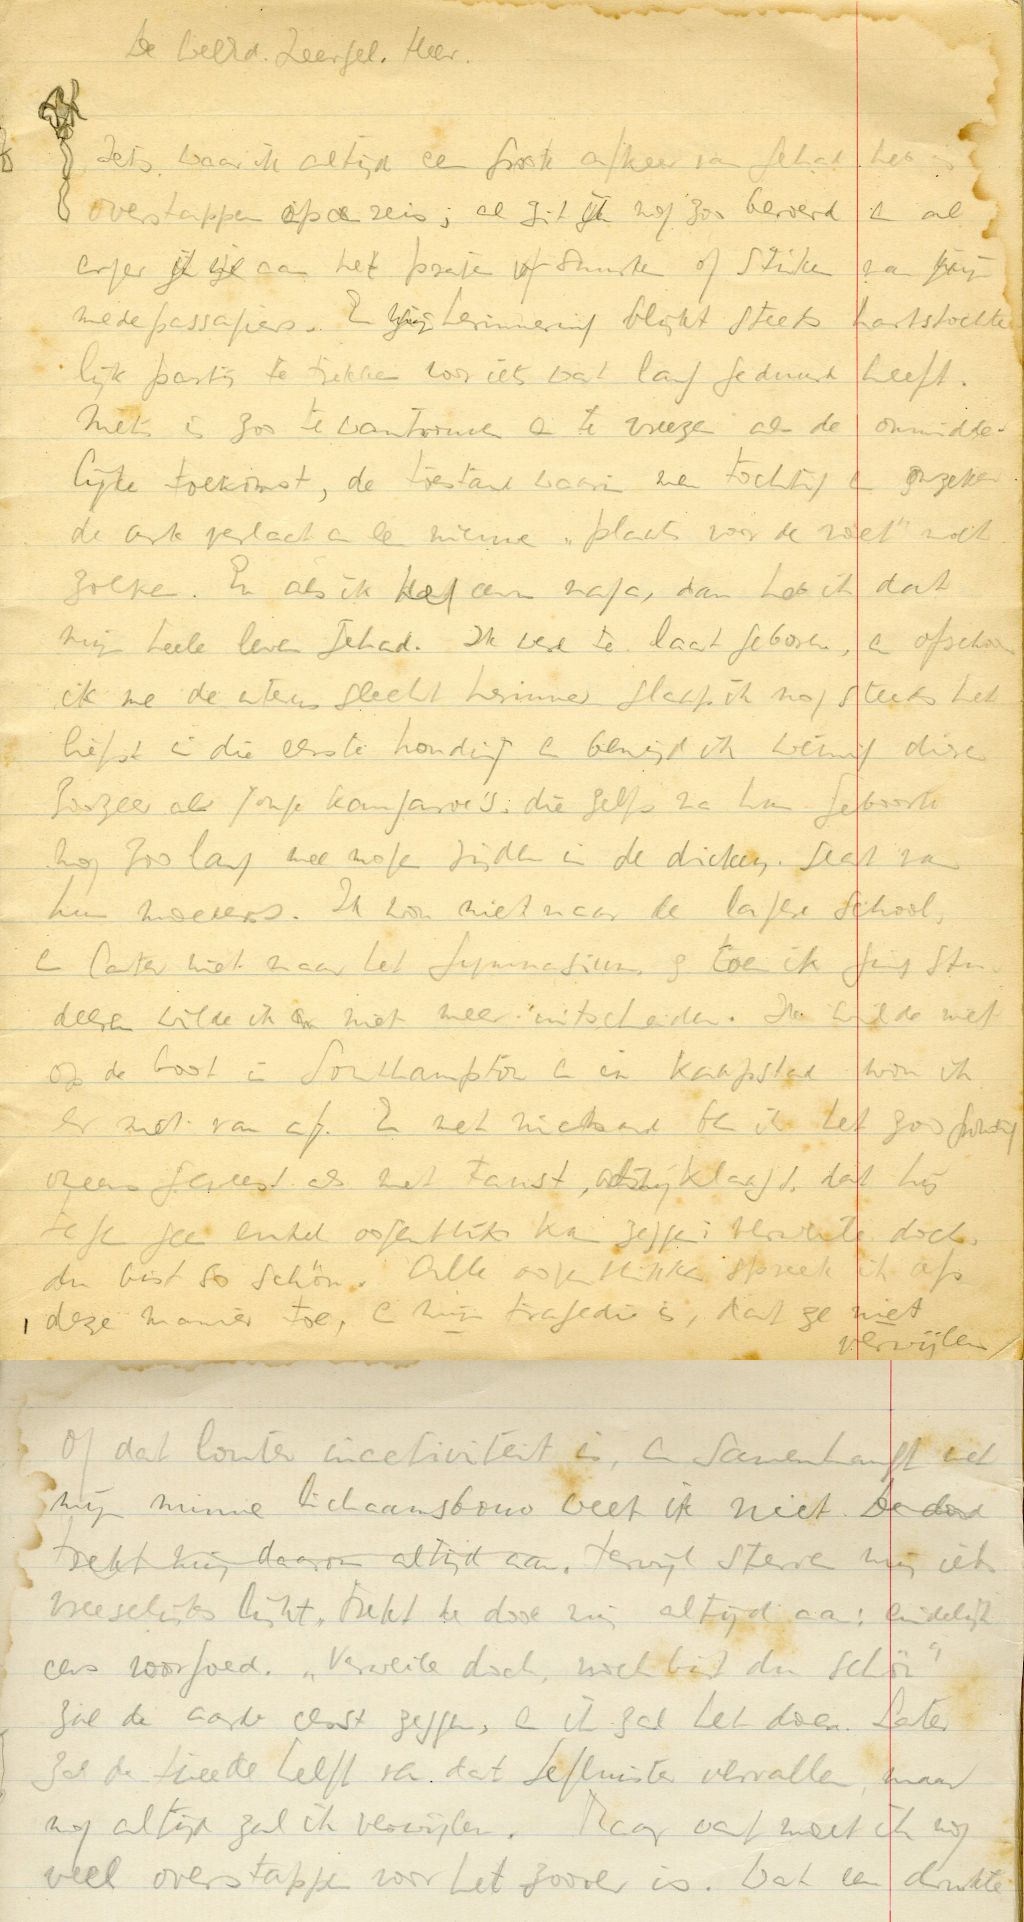 De WelEd. Zeergel. Heer.
Iets waar ik altijd een groote afkeer van gehad heb is
overstappen op de reis; al zit ik nog zoo beroerd en al
erger ik me aan het praten of snurken of stinken van mijn
medepassagiers. En mijn herinnering blijkt steeds hartstochte
lijk partij te trekken voor iets wat lang geduurd heeft.
Niets is zoo te wantrouwen en te vreezen als de onmidde-
lijke toekomst, de toestand waarin men tochtig en onzeker
de ark verlaat en een nieuwe „plaats voor de voet" moet
zoeken. En als ik het even naga, dan heb ik dat
mijn heele leven gehad. Ik werd te laat geboren, en ofschoon
ik me de uterus slecht herinner slaap ik nog steeds het
liefst in die eerste houding en benijd ik weinig dieren
zoozeer als jonge kangaroe's, die zelfs na hun geboorte
nog zoo lang mee mogen rijden in de dickey-seat van
hun moeders. Ik wou niet naar de lagere school,
en later niet naar het gymnasium, en toen ik ging stu-
deeren wilde ik er niet meer uitscheiden. Ik wilde niet
op de boot in Southampton en in Kaapstad wou ik
er niet van af. En met niemand ben ik het zoo grondig
oneens geweest als met Faust, als hij klaagt, dat hij
tegen geen enkel oogenblik kan zeggen: verweile doch,
du bist so schön. Alle oogenblikken spreek ik op
deze manier toe, en mijn tragedie is, dat ze niet
verwijlen
Of dat louter inactiviteit is, en samenhangt met
mijn minne lichaamsbouw weet ik niet. De dood
trekt mij daarom altijd aan. Terwijl sterven mij iets
vreeselijks lijkt, trekt de dood mij altijd aan: eindelijk
eens voorgoed. „Verweile doch, noch bist du schön"
zal de aarde eerst zeggen, en ik zal het doen. Later
zal de tweede helft van dat gefluister vervallen, maar
nog altijd zal ik verwijlen. Maar wat moet ik nog
veel overstappen voor het zoover is. Wat een drukte